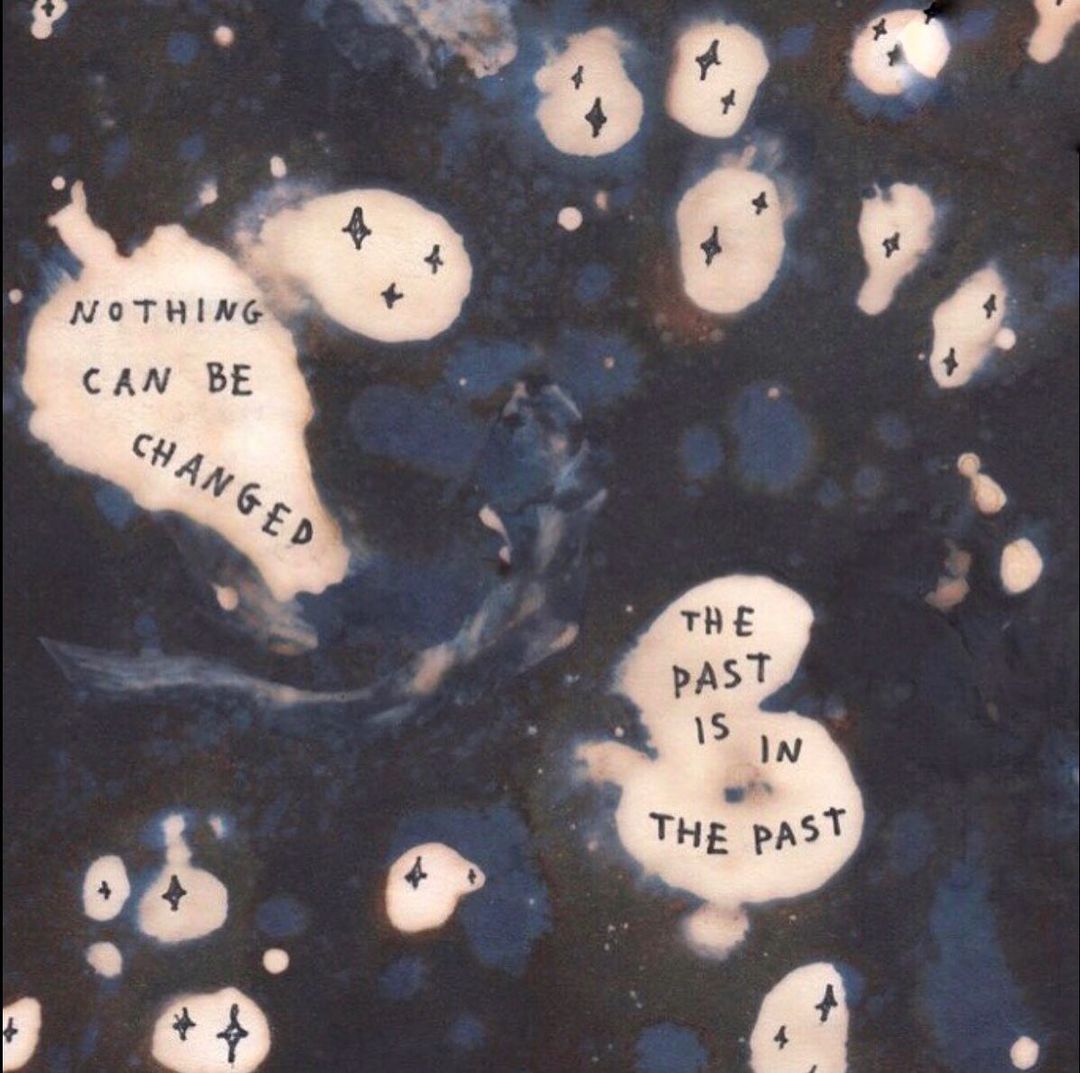 NOTHING
CAN BE
CHANGED
THE
PAST
IS IN
THE PAST